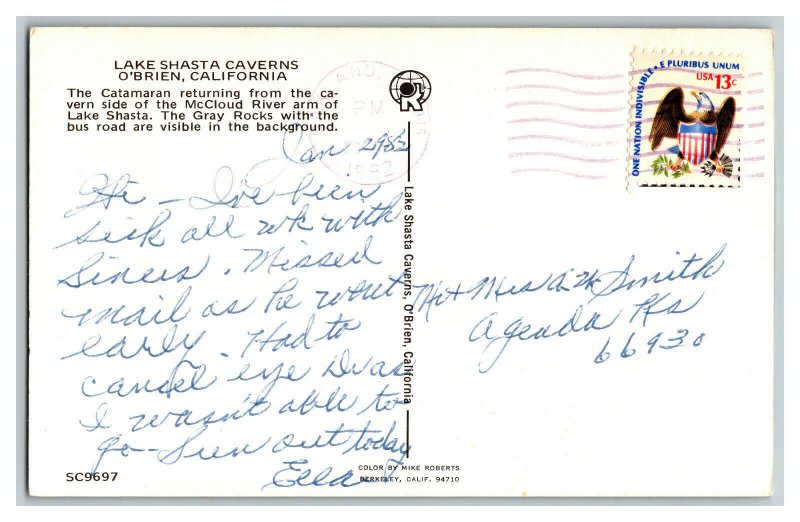 LAKE SHASTA CAVERNS
O'BRIEN, CALIFORNIA
The Catamaran returning from the ca-
vern side of the McCloud River arm of
Lake Shasta. The Gray Rocks with the
bus road are visible in the background.
AND,
PM
1982
R
E PLURIBUS UNUM
USA 13c
ONE NATION INDIVISIBLE
Jan 2982
Hi - I've been
sick all wk with
Sinus. Missed
mail as he went
early. Had to
cancel eye Dr as
I wasn't able to
go - Sun out today
Ella
Lake Shasta Caverns, O'Brien, California
Mr + Mrs Smith
Agenda Ks
66930
SC9697
COLOR BY MIKE ROBERTS
BERKELEY, CALIF. 94710